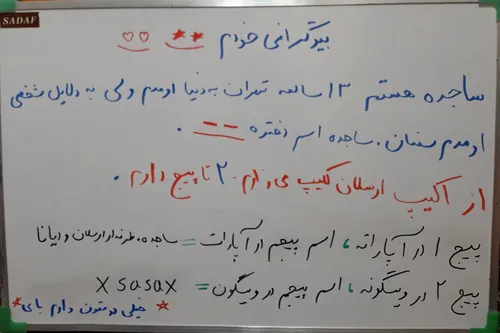 SADAF
بیوگرافی خودم
ساجده هستم ۱۳ ساله تهران به دنیا اومدم ولی به دلایل شخصی
اومدم سمنان. ساجده اسم دختره.
از اکیپ ارسلان کلیپ می زارم. ۲ تا پیج دارم.
پیج ۱ در آپاراته، اسم پیجم در آپارات = ساجده. طرفدار ارسلان و دیانا
پیج ۲ در ویسگونه، اسم پیجم در ویسگون = xsasax
خیلی دوستون دارم بای